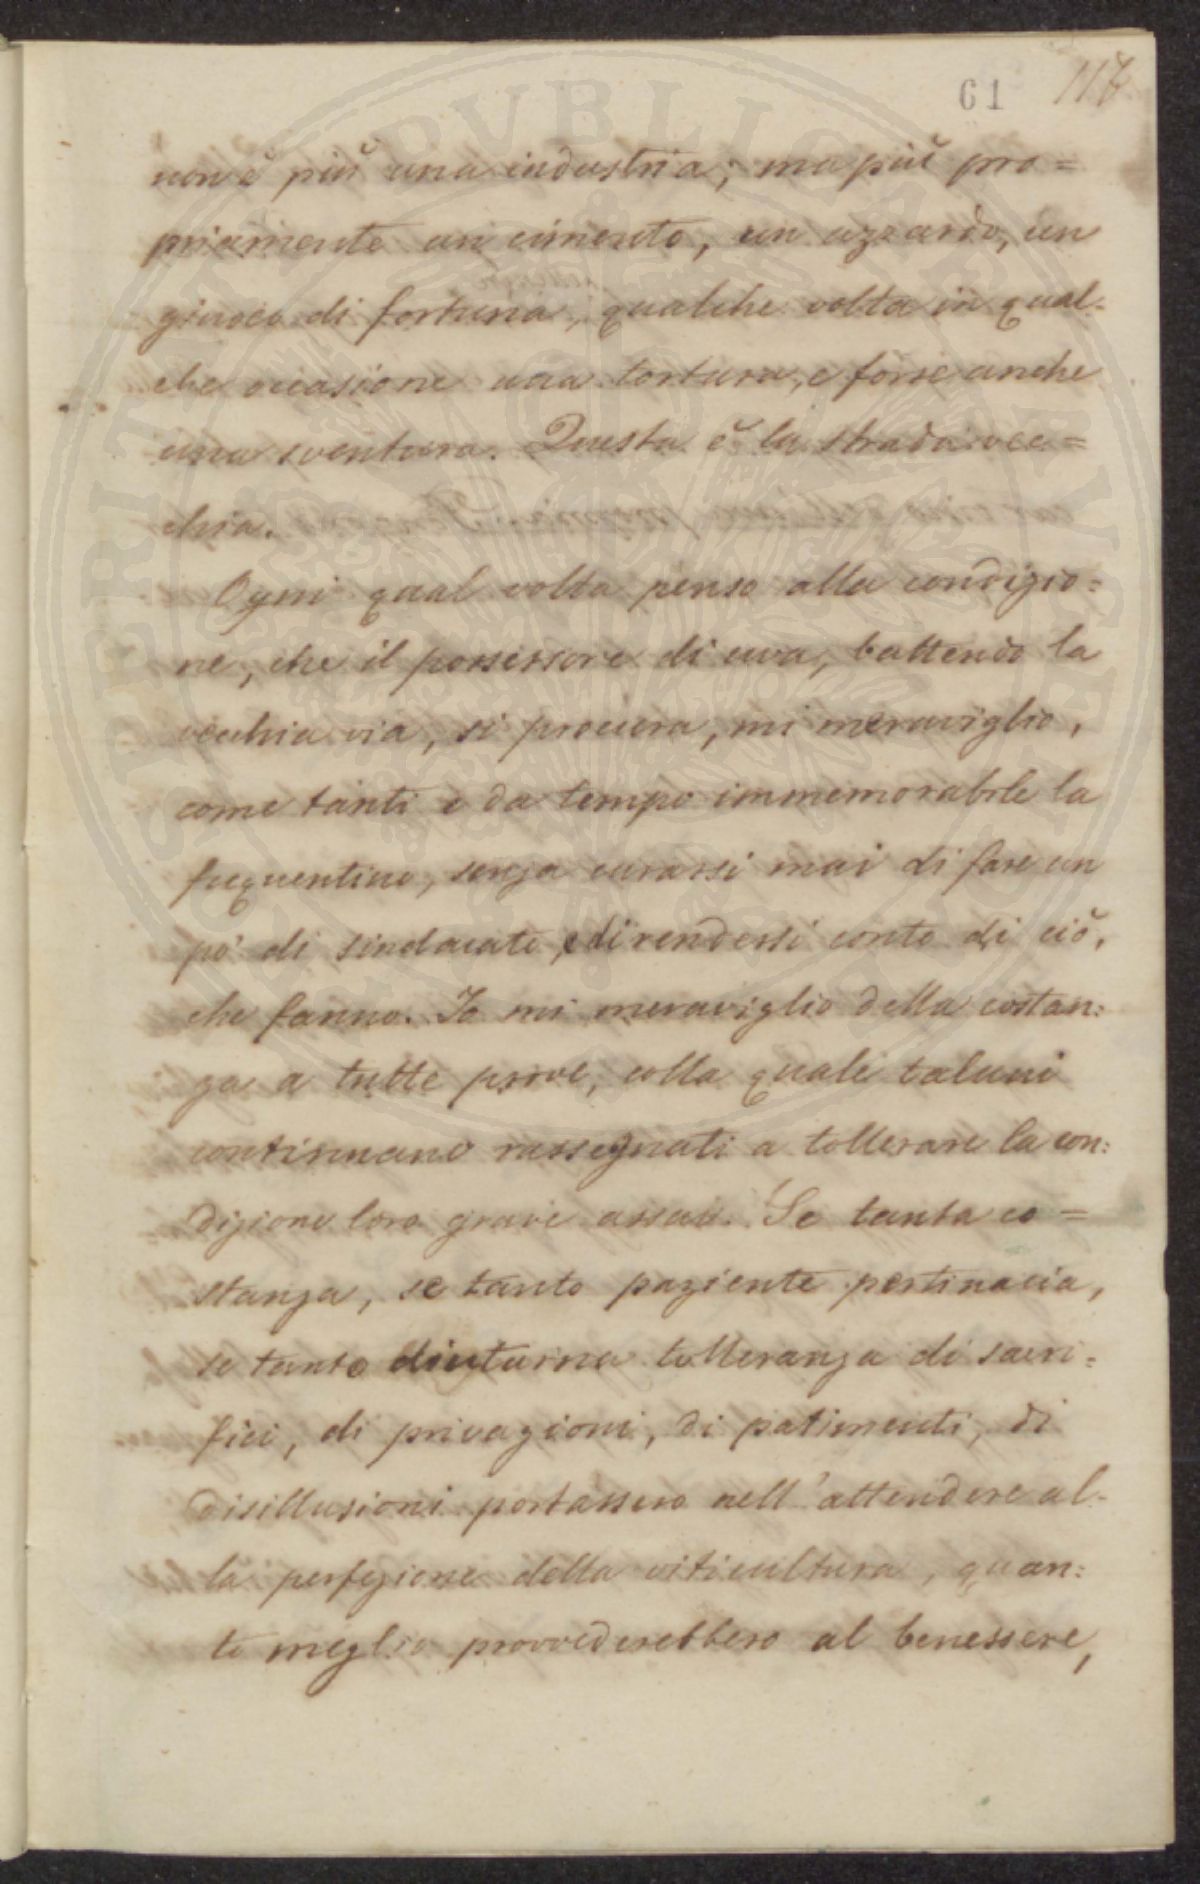 61 117
non è più una industria; ma più pro=
priamente un cimento, un azzardo, un
giuoco di fortuna, qualche volta in qual-
che occasione una tortura, e forse anche
una sventura. Questa è la strada vec=
chia.
Ogni qual volta penso alla condizio=
ne, che il possessore di uva, battendo la
vecchia via, si procura, mi meraviglio,
come tanti e da tempo immemorabile la
frequentino, senza curarsi mai di fare un
po' di sindacato, e di rendersi conto di ciò,
che fanno. Io mi meraviglio della costan=
za a tutte prove, colla quale taluni
continuano rassegnati a tollerare la con=
dizione loro grave assai. Se tanta co=
stanza, se tanto paziente pertinacia,
se tanto diuturna tolleranza di sacri=
fici, di privazioni, di patimenti, di
disillusioni portassero nell'attendere al-
la perfezione della viticultura, quan=
to meglio provvederebbero al benessere,